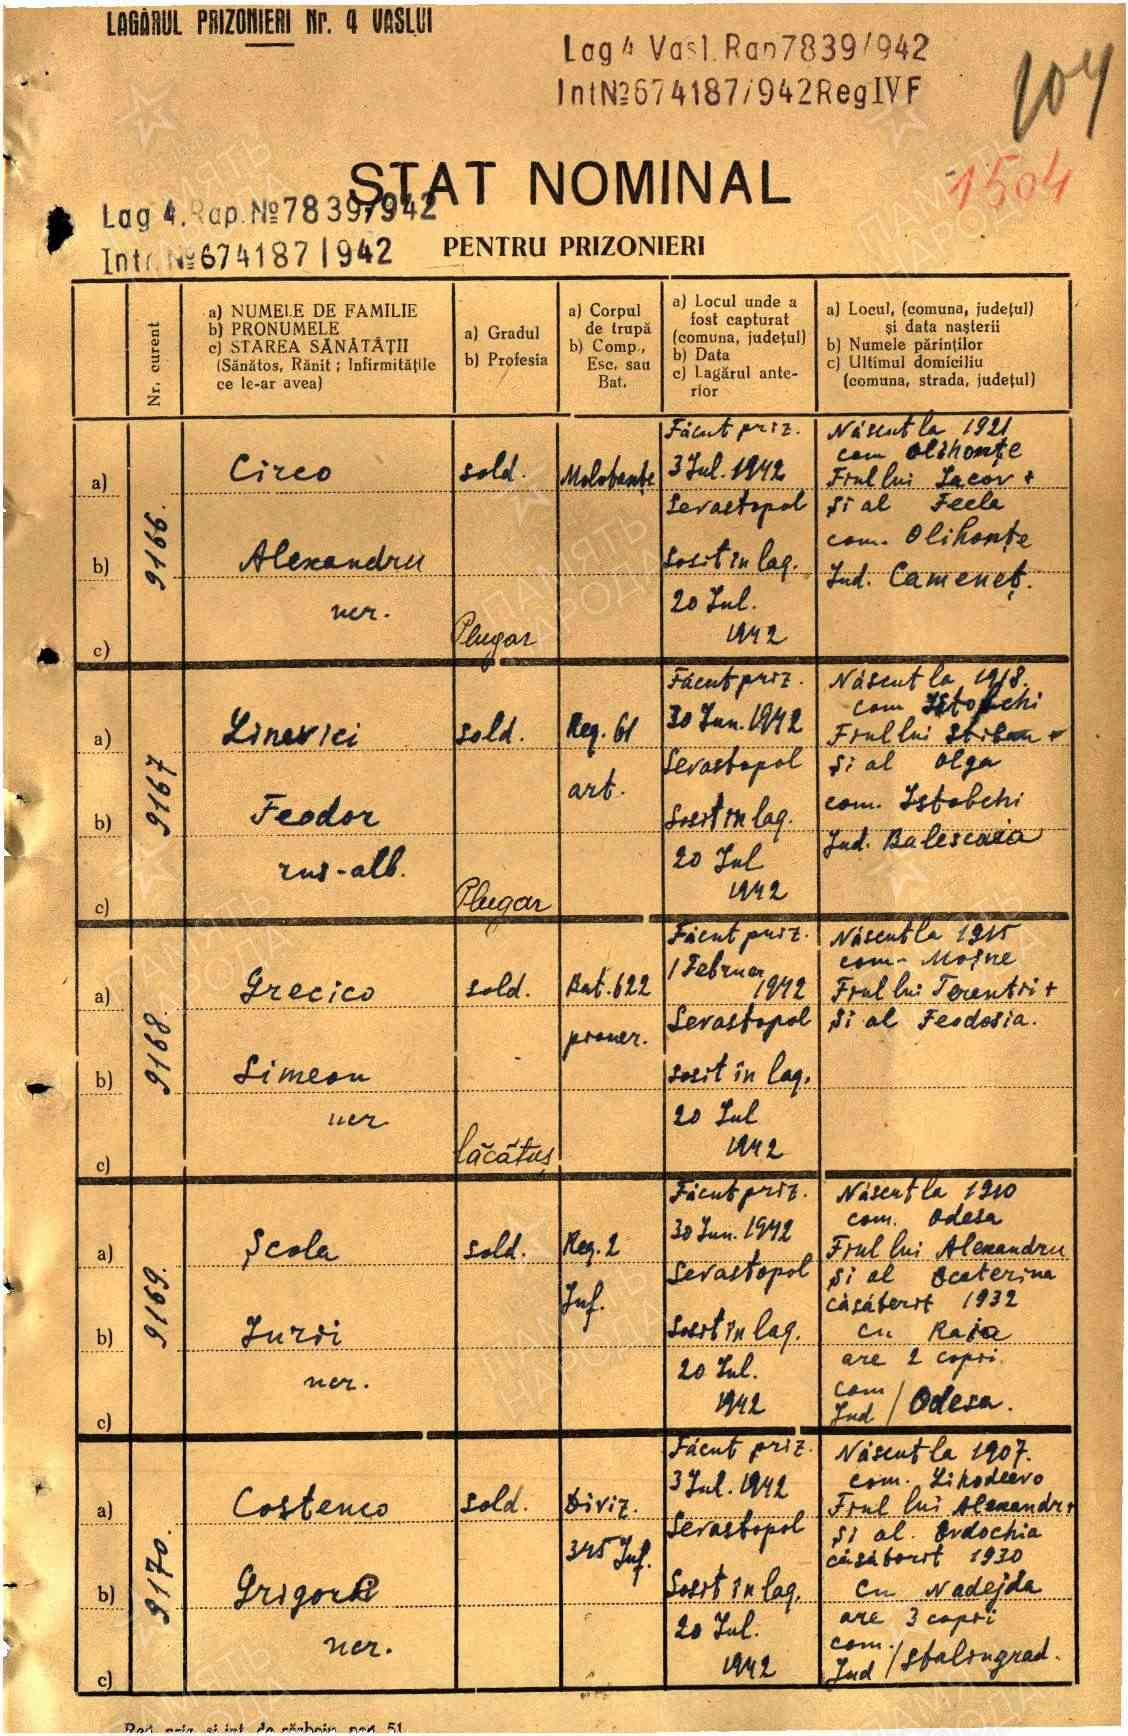 LAGĂRUL PRIZONIERI Nr. 4 VASLUI
Lag 4 Vasl. Rap 7839/942
Int No 674187/942 Reg IV F
104
1504
STAT NOMINAL
Lag 4. Rap. No 7839/942
Intr. No 674187/942
PENTRU PRIZONIERI
Nr. curent
a) NUMELE DE FAMILIE
b) PRONUMELE
c) STAREA SĂNĂTĂȚII
(Sănătos, Rănit ; Infirmitățile
ce le-ar avea)
a) Gradul
b) Profesia
a) Corpul
de trupă
b) Comp.,
Esc. sau
Bat.
a) Locul unde a
fost capturat
(comuna, județul)
b) Data
c) Lagărul ante-
rior
a) Locul, (comuna, județul)
și data nașterii
b) Numele părinților
c) Ultimul domiciliu
(comuna, strada, județul)
9166.
a) Circo
b) Alexandru
ucr.
c)
sold.
Plugar
Făcut priz.
3 Iul. 1942
Sevastopol
Sosit în lag.
20 Iul.
1942
Născut la 1921
com Olihonțe
Fiul lui Iacov +
Și al Fecla
com. Olihonțe
Jud. Cameneț.
9167
a) Linevici
b) Feodor
rus-alb.
c)
sold.
Plugar
Reg. 61
art.
Făcut priz.
30 Iun. 1942
Sevastopol
Sosit în lag.
20 Iul
1942
Născut la 1918.
com Istobchi
Fiul lui +
Și al Olga
com. Istobchi
Jud. Balescaia
9168.
a) Grecico
b) Simeon
ucr
c)
sold.
lăcătuș
Bat. 622
pioner.
Făcut priz.
1 Februar
1942
Sevastopol
Sosit în lag.
20 Iul
1942
Născut la 1915
com- Moșne
Fiul lui Terentri +
Și al Feodosia.
9169.
a) Școla
b) Iurii
ucr.
c)
sold.
Reg. 2
Inf.
Făcut priz.
30 Iun. 1942
Sevastopol
Sosit în lag.
20 Iul.
1942
Născut la 1910
com. Odesa
Fiul lui Alexandru
Și al Ecaterina
căsătorit 1932
cu Raia
are 2 copii.
com
Jud / Odesa.
9170.
a) Costenco
b) Grigore
ucr.
c)
sold.
Diviz.
345 Inf.
Făcut priz.
3 Iul. 1942
Sevastopol
Sosit în lag.
20 Iul.
1942
Născut la 1907.
com. Lihodeevo
Fiul lui Alexandr +
Și al. Evdochia
căsătorit 1930
cu Nadejda
are 3 copii
com.
Jud / Stalingrad.
ПАМЯТЬ
НАРОДА